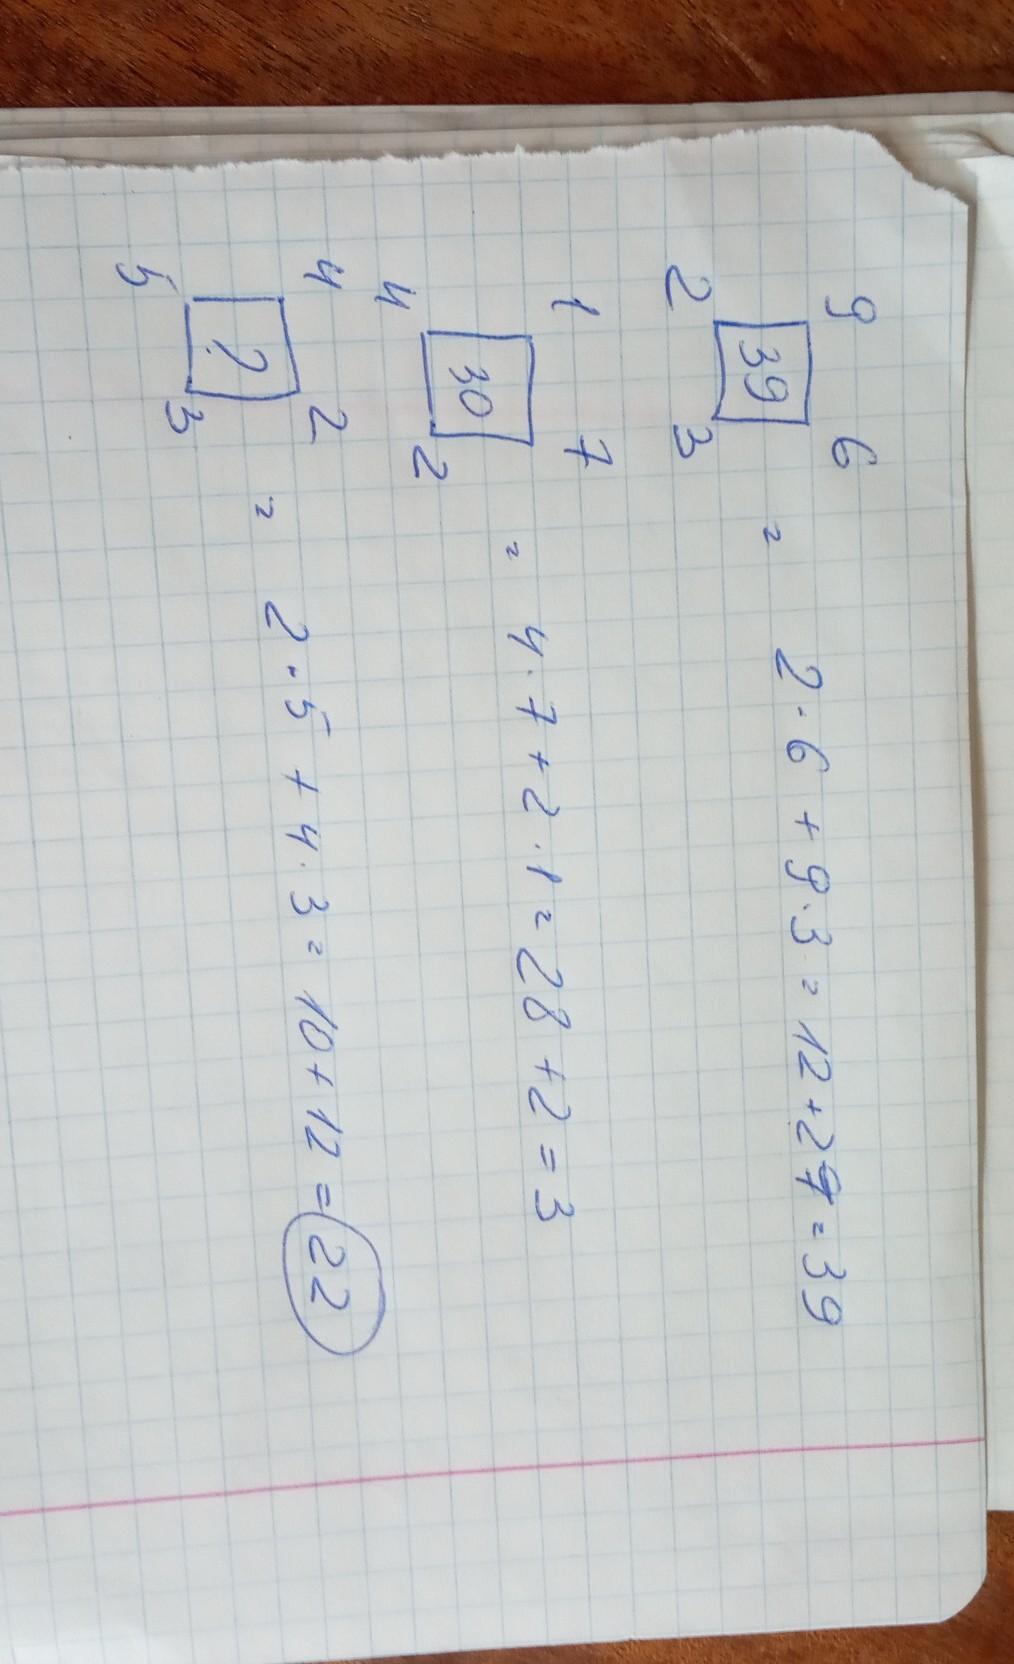 9 6
39 = 2·6 + 9·3 = 12+27 = 39
2 3
1 7
30 = 4·7+2·1 = 28+2 = 3
4 2
4 2
? = 2·5 + 4·3 = 10+12 = 22
5 3